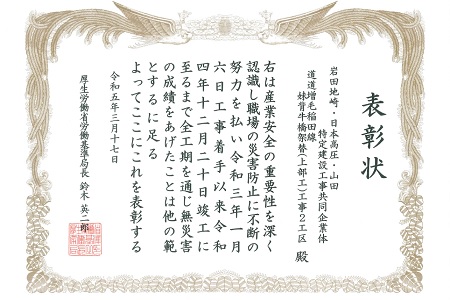 表彰状
岩田地崎・日本高圧・山田
特定建設工事共同企業体
道道増毛稲田線
妹背牛橋架替(上部工)工事2工区 殿
右は産業安全の重要性を深く
認識し職場の災害防止に不断の
努力を払い令和三年一月
六日工事着手以来令和
四年十二月二十日竣工に
至るまで全工期を通じ無災害
の成績をあげたことは他の範
とするに足る
よってここにこれを表彰する
令和五年三月十七日
厚生労働省労働基準局長 鈴木英二郎